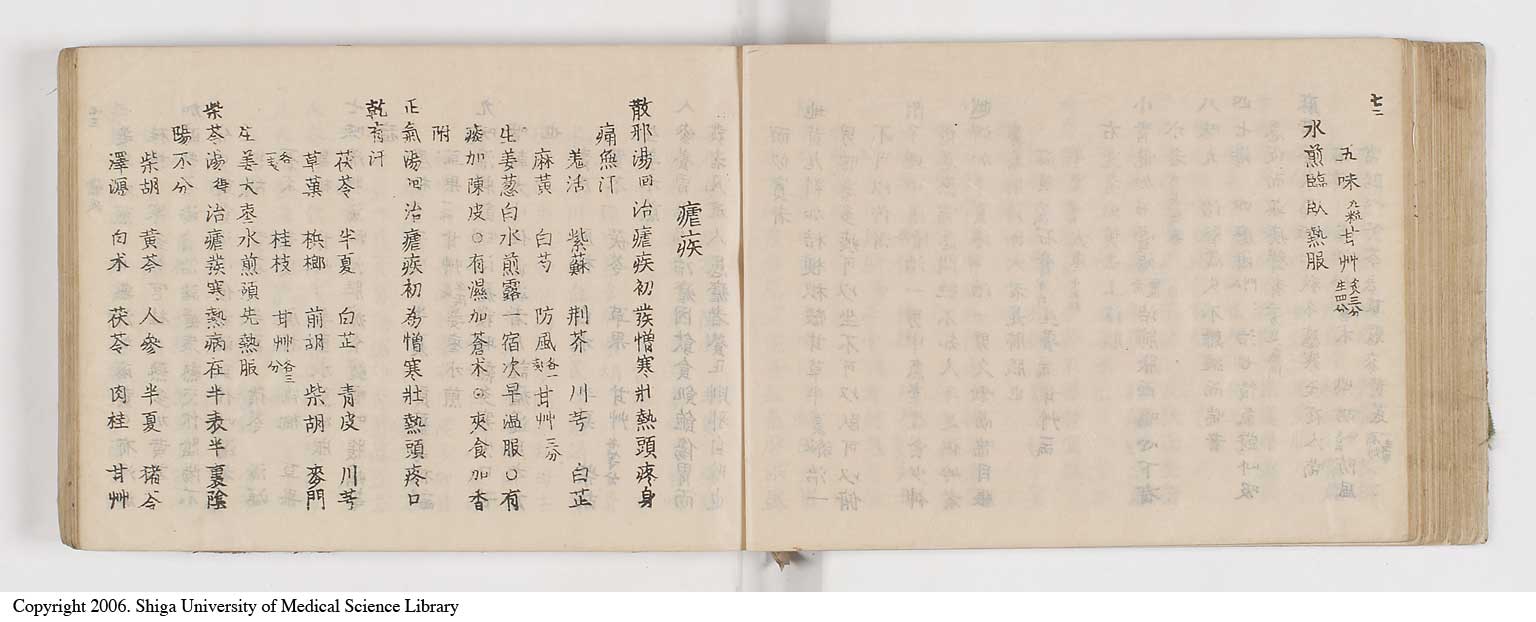 七二
五味 九粒 甘艸 炙三分 生四分
水煎臨臥熱服
瘧疾
散邪湯 回 治瘧疾初發憎寒壯熱頭疼身
痛無汗
羗活 紫蘇 荆芥 川芎 白芷
麻黃 白芍 防風 各一戔 甘艸 三分
生姜葱白水煎露一宿次早温服○有
痰加陳皮○有濕加蒼朮○夾食加香
附
正氣湯 回 治瘧疾初發憎寒壯熱頭疼口
乾有汗
茯苓 半夏 白芷 青皮 川芎
草菓 梹榔 前胡 柴胡 麥門
各一戔 桂枝 甘艸 各三分
生姜大枣水煎預先熱服
柴苓湯 得 治瘧發寒熱病在半表半裏陰
陽不分
柴胡 黃芩 人參 半夏 猪苓
澤瀉 白朮 茯苓 肉桂 甘艸
Copyright 2006. Shiga University of Medical Science Library